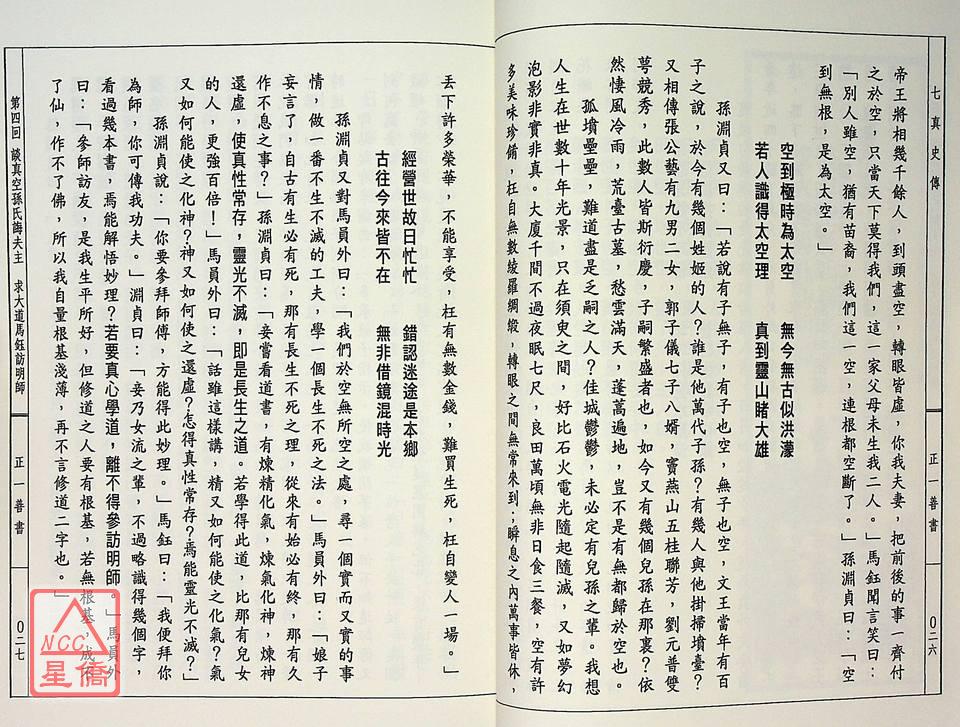 七真史傳
正一善書
0二六
帝王將相幾千餘人，到頭盡空，轉眼皆虛，你我夫妻，把前後的事一齊付
之於空，只當天下莫得我們，這一家父母未生我二人。」馬鈺聞言笑曰：
「別人雖空，猶有苗裔，我們這一空，連根都空斷了。」孫淵貞曰：「空
到無根，是為太空。」
空到極時為太空　無今無古似洪濛
若人識得太空理　真到靈山睹大雄
孫淵貞又曰：「若說有子無子，有子也空，無子也空，文王當年有百
子之說，於今有幾個姓姬的人？誰是他萬代子孫？有幾人與他掛掃墳臺？
又相傳張公藝有九男二女，郭子儀七子八婿，竇燕山五桂聯芳，劉元普雙
萼競秀，此數人皆斯衍慶，子嗣繁盛者也，如今又有幾個兒孫在那裏？依
然悽風冷雨，荒臺古墓，愁雲滿天，蓬蒿遍地，豈不是有無都歸於空也。
孤墳壘壘，難道盡是乏嗣之人？佳城鬱鬱，未必定有兒孫之輩。我想
人生在世數十年光景，只在須臾之間，好比石火電光隨起隨滅，又如夢幻
泡影非實非真。大廈千間不過夜眠七尺，良田萬頃無非日食三餐，空有許
多美味珍饈，枉自無數綾羅綢緞，轉眼之間無常來到；瞬息之內萬事皆休，
丟下許多榮華，不能享受，枉有無數金錢，難買生死，枉自變人一場。」
經營世故日忙忙　錯認迷途是本鄉
古往今來皆不在　無非借鏡混時光
孫淵貞又對馬員外曰：「我們於空無所空之處，尋一個實而又實的事
情，做一番不生不滅的工夫，學一個長生不死之法。」馬員外曰：「娘子
妄言了，自古有生必有死，那有長生不死之理，從來有始必有終，那有久
作不息之事？」孫淵貞曰：「妾嘗看道書，有煉精化氣，煉氣化神，煉神
還虛，使真性常存，靈光不滅，即是長生之道。若學得此道，比那有兒女
的人，更強百倍！」馬員外曰：「話雖這樣講，精又如何能使之化氣？氣
又如何能使之化神？神又如何使之還虛？怎得真性常存？焉能靈光不滅？」
孫淵貞說：「你要參拜師傅，方能得此妙理。」馬鈺曰：「我便拜你
為師，你可傳我功夫。」淵貞曰：「妾乃女流之輩，不過略識得幾個字，
看過幾本書，焉能解悟妙理？若要真心學道，離不得參訪明師。」馬員外
曰：「參師訪友，是我生平所好，但修道之人要有根基，若無根基，成不
了仙，作不了佛，所以我自量根基淺薄，再不言修道二字也。」
第四回　談真空孫氏誨夫主　求大道馬鈺訪明師
正一善書
0二七
NCC
星僑